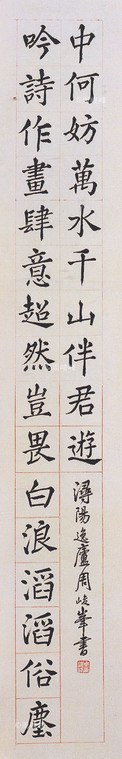 中何妨萬水千山伴君遊
吟詩作畫肆意超然豈畏白浪滔滔俗塵
潯陽逸廬周峻峯書